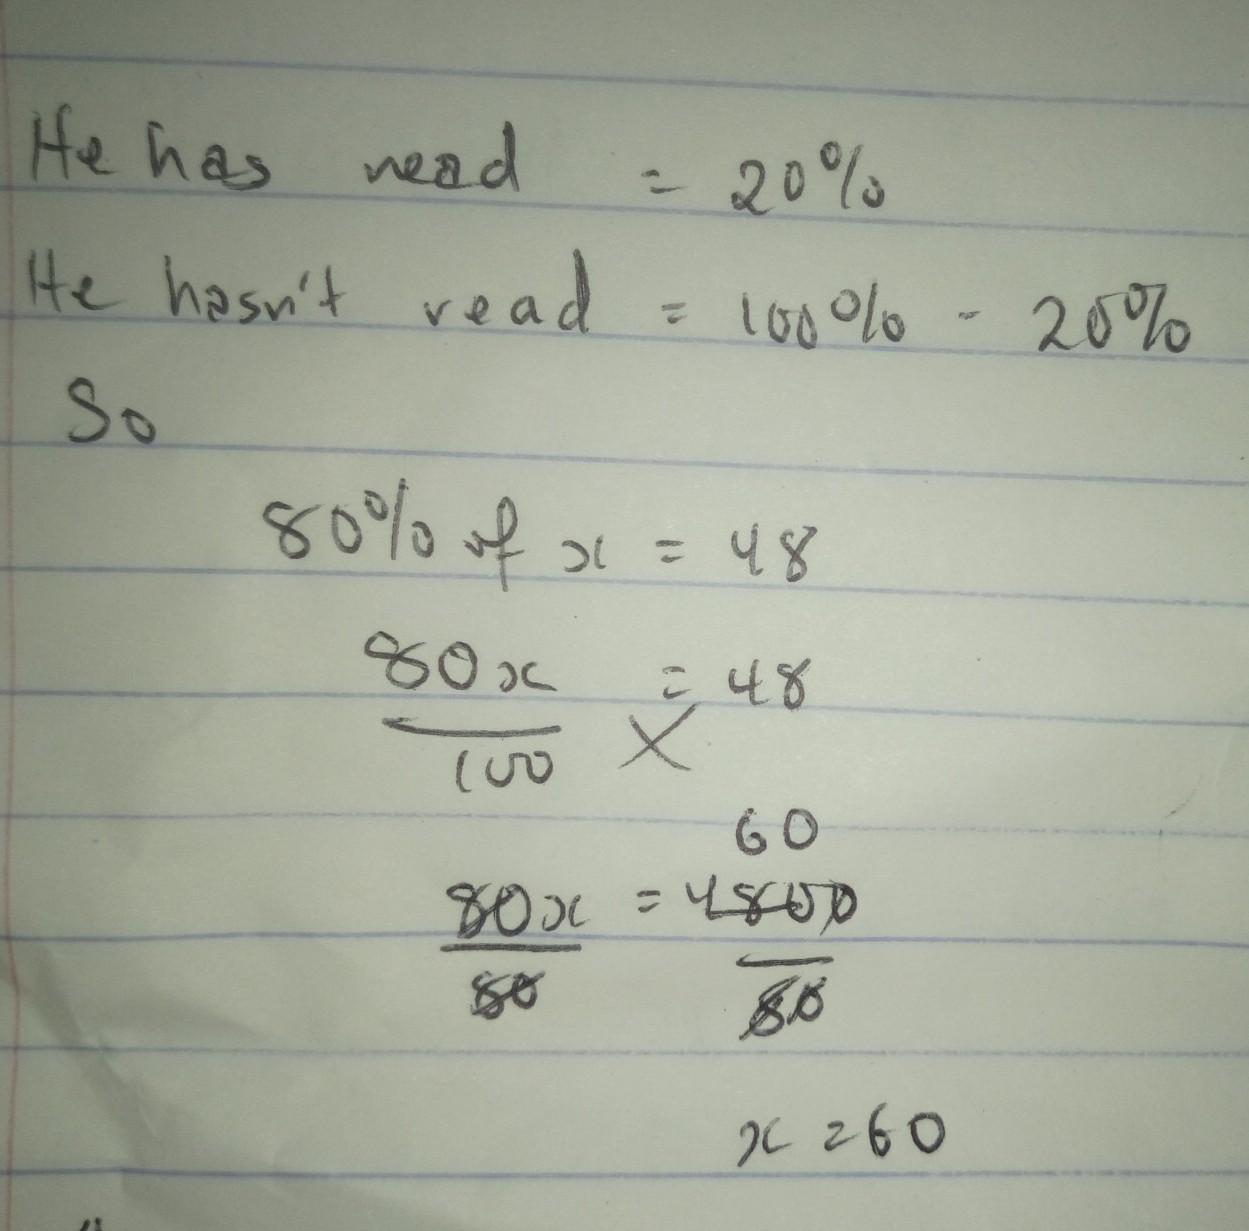 He has read = 20%
He hasn't read = 100% - 20%
So
80% of x = 48
80x = 48
100 X
60
80x = 4800
80 80
x = 60